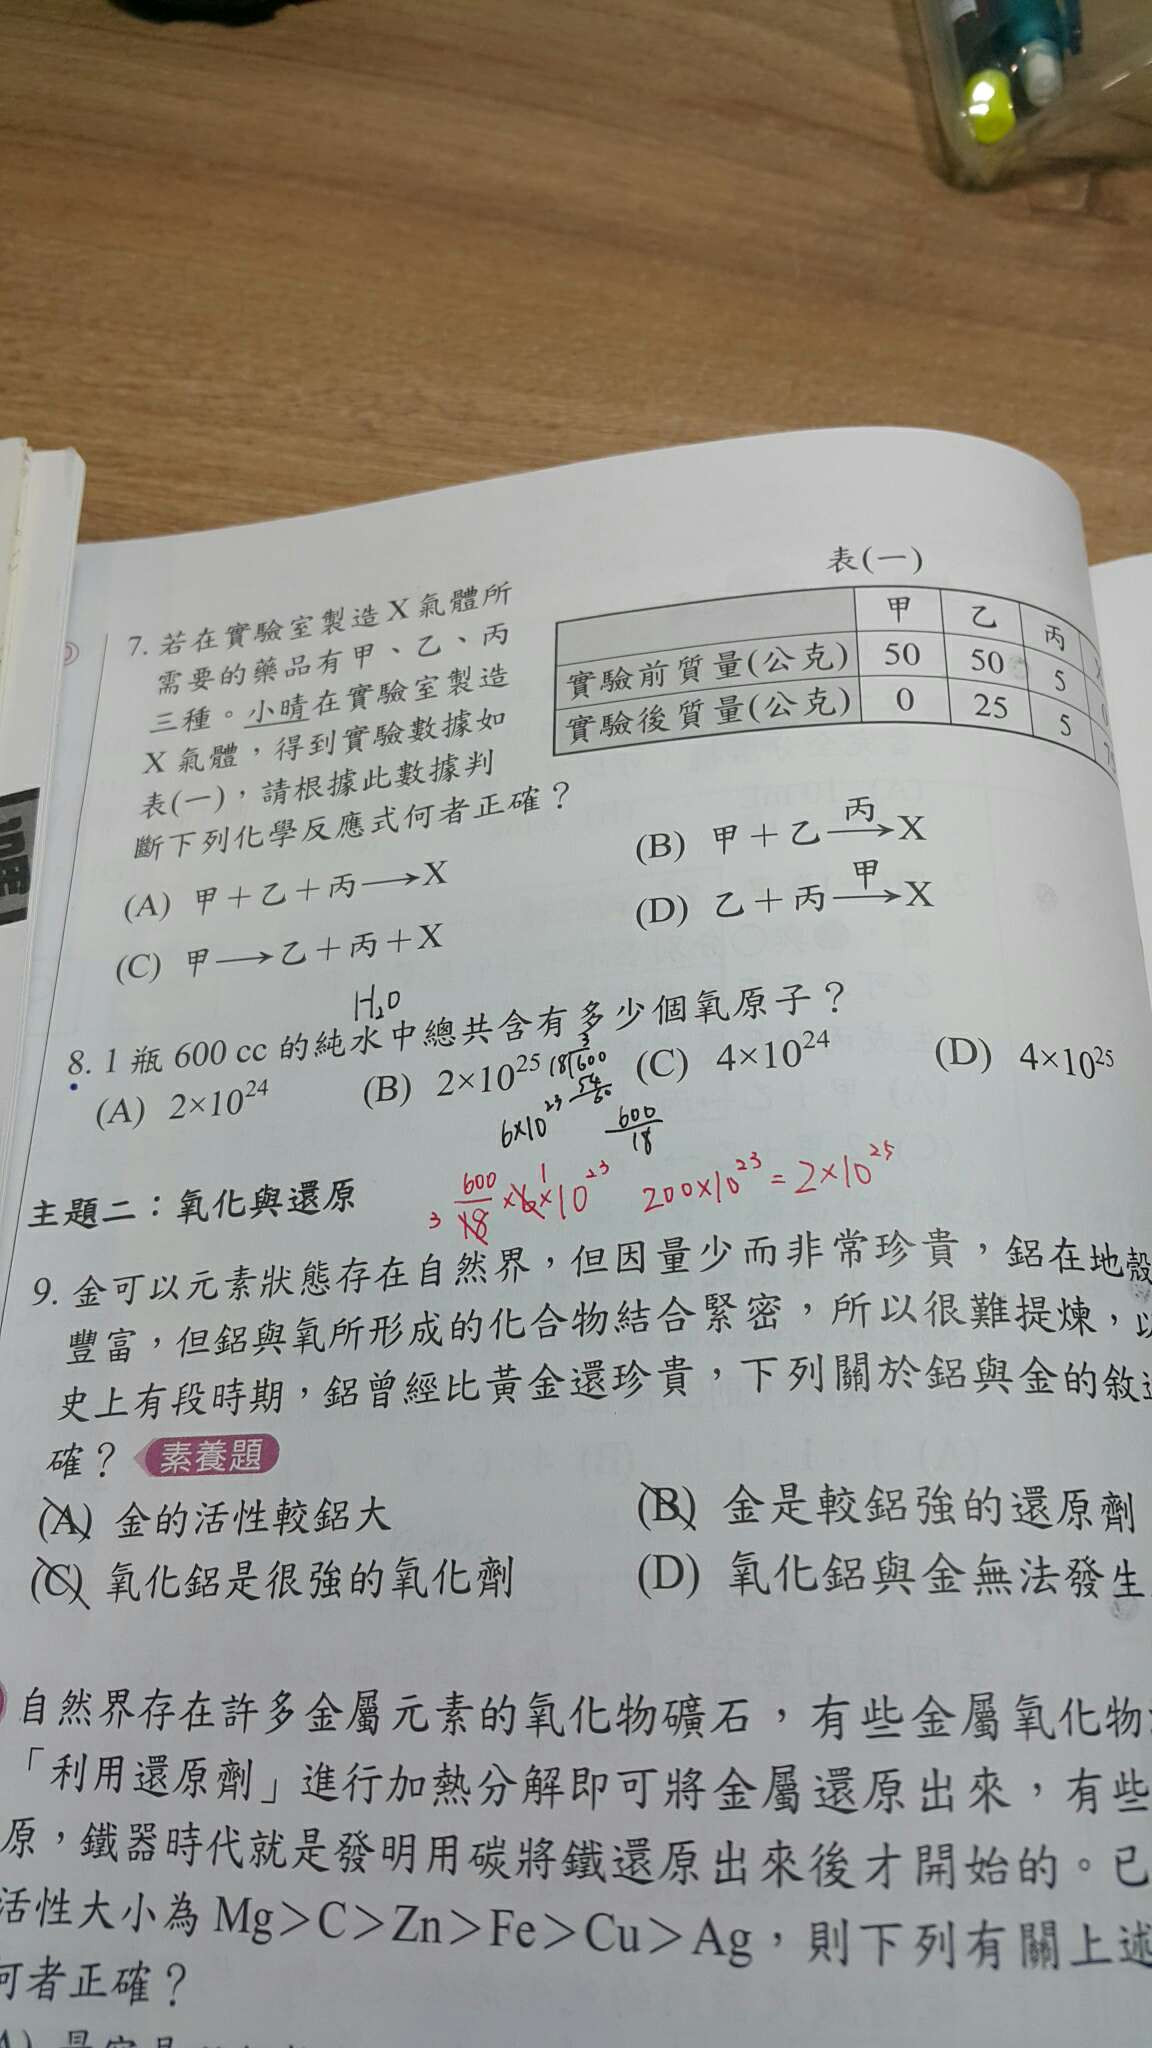 表(一)
甲 乙 丙
實驗前質量(公克) 50 50 5
實驗後質量(公克) 0 25 5
7. 若在實驗室製造X氣體所
需要的藥品有甲、乙、丙
三種。小晴在實驗室製造
X氣體，得到實驗數據如
表(一)，請根據此數據判
斷下列化學反應式何者正確？
(A) 甲＋乙＋丙⟶X
(B) 甲＋乙⟶X 丙
(C) 甲⟶乙＋丙＋X
(D) 乙＋丙⟶X 甲
H₂O
8. 1瓶600 cc的純水中總共含有多少個氧原子？
(A) 2×10²⁴ (B) 2×10²⁵ (C) 4×10²⁴ (D) 4×10²⁵
3
18 600
54
60
6×10²³ 600/18
3 600/18 ×6×10²³ 1 200×10²³=2×10²⁵
主題二：氧化與還原
9. 金可以元素狀態存在自然界，但因量少而非常珍貴，鋁在地殼
豐富，但鋁與氧所形成的化合物結合緊密，所以很難提煉，以
史上有段時期，鋁曾經比黃金還珍貴，下列關於鋁與金的敘
確？ 素養題
(A) 金的活性較鋁大 (B) 金是較鋁強的還原劑
(C) 氧化鋁是很強的氧化劑 (D) 氧化鋁與金無法發生
自然界存在許多金屬元素的氧化物礦石，有些金屬氧化物
「利用還原劑」進行加熱分解即可將金屬還原出來，有些
原，鐵器時代就是發明用碳將鐵還原出來後才開始的。已
活性大小為Mg＞C＞Zn＞Fe＞Cu＞Ag，則下列有關上述
何者正確？